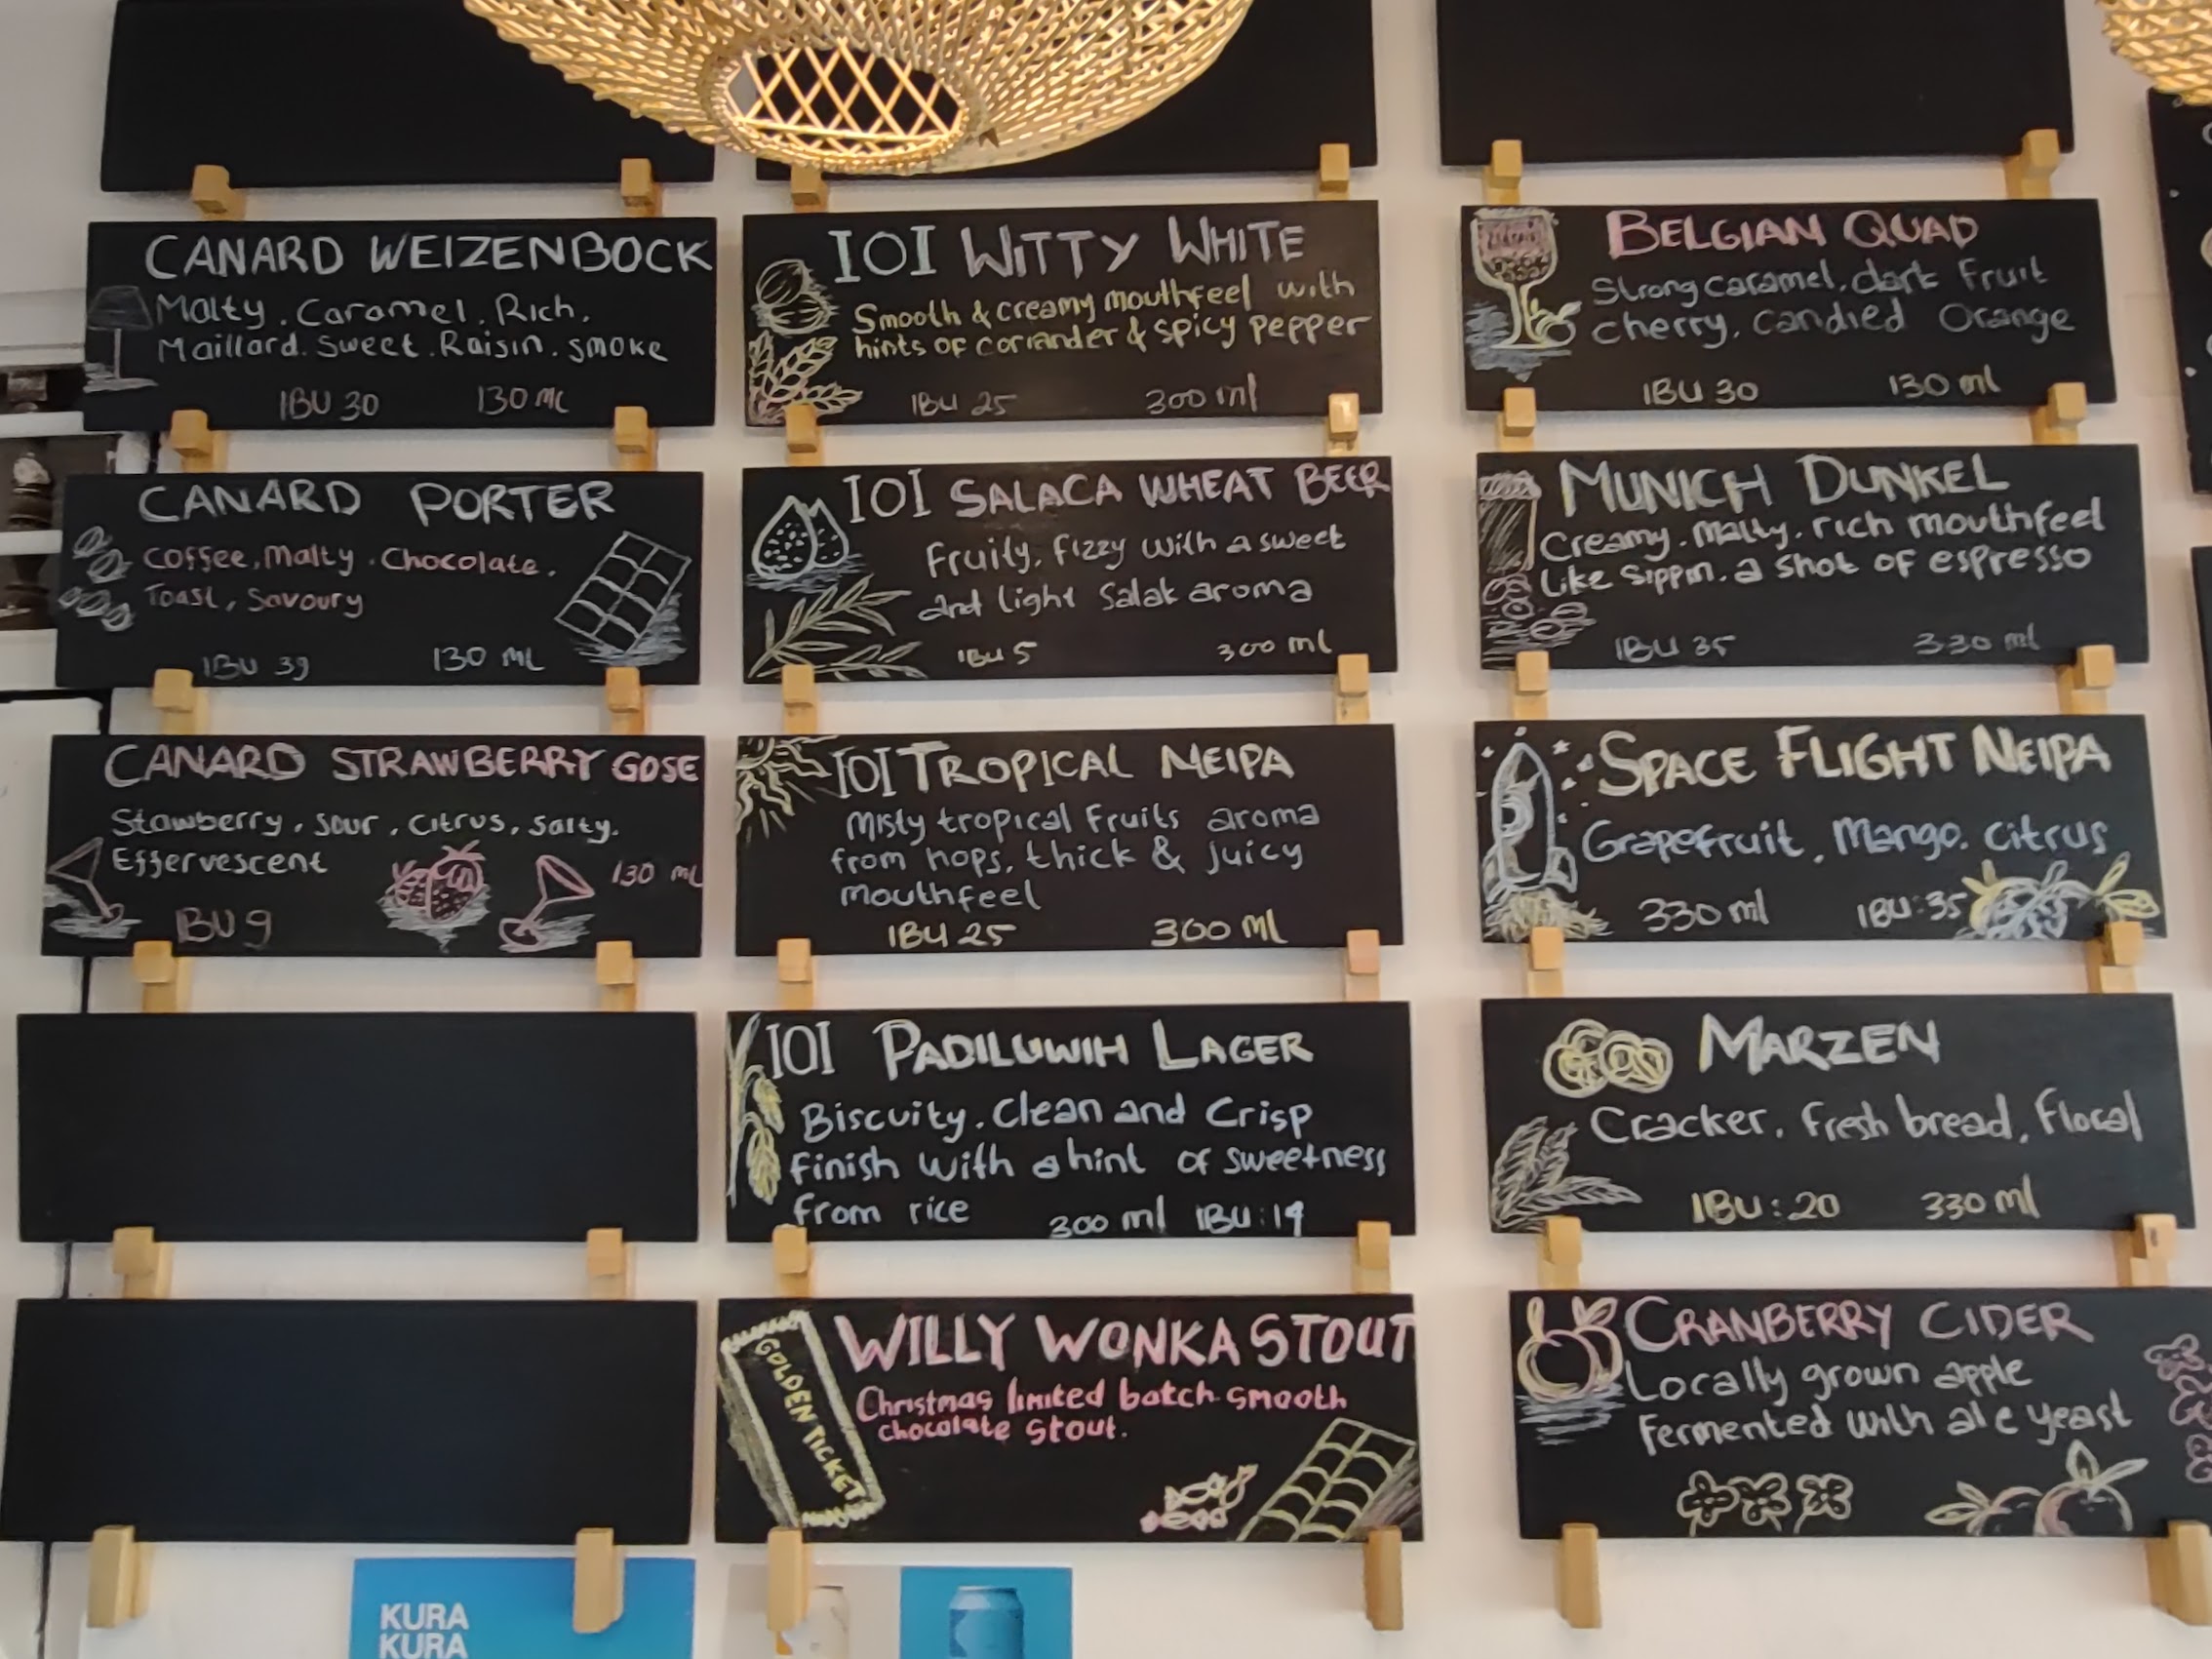 CANARD WEIZENBOCK
Malty. Caramel. Rich.
Maillard. Sweet. Raisin. smoke
IBU 30 130 ML
CANARD PORTER
Coffee, Malty. Chocolate.
Toast, Savoury
IBU 39 130 ML
CANARD STRAWBERRY GOSE
Stawberry, sour, citrus, salty.
Effervescent
130 ML
IBU 9
IOI WITTY WHITE
Smooth & creamy mouthfeel with
hints of coriander & spicy pepper
IBU 25 300 ml
IOI SALACA WHEAT BEER
Fruity, Fizzy with a sweet
and light Salak aroma
IBU 5 300 ml
IOI TROPICAL NEIPA
Misty tropical Fruits aroma
from hops, thick & juicy
mouthfeel
IBU 25 300 Ml
IOI PADILUWIH LAGER
Biscuity. Clean and Crisp
finish with a hint of sweetness
from rice 300 ml IBU: 19
WILLY WONKA STOUT
GOLDEN TICKET
Christmas limited batch smooth
chocolate stout.
BELGIAN QUAD
Strong caramel, dark Fruit
cherry, candied Orange
IBU 30 130 ml
MUNICH DUNKEL
Creamy. Malty. rich mouthfeel
Like Sippin. a shot of espresso
IBU 35 330 ml
SPACE FLIGHT NEIPA
Grapefruit, Mango. Citrus
330 ml IBU: 35
MARZEN
Cracker, fresh bread, Floral
IBU: 20 330 ml
CRANBERRY CIDER
Locally grown apple
Fermented with ale yeast
KURA
KURA